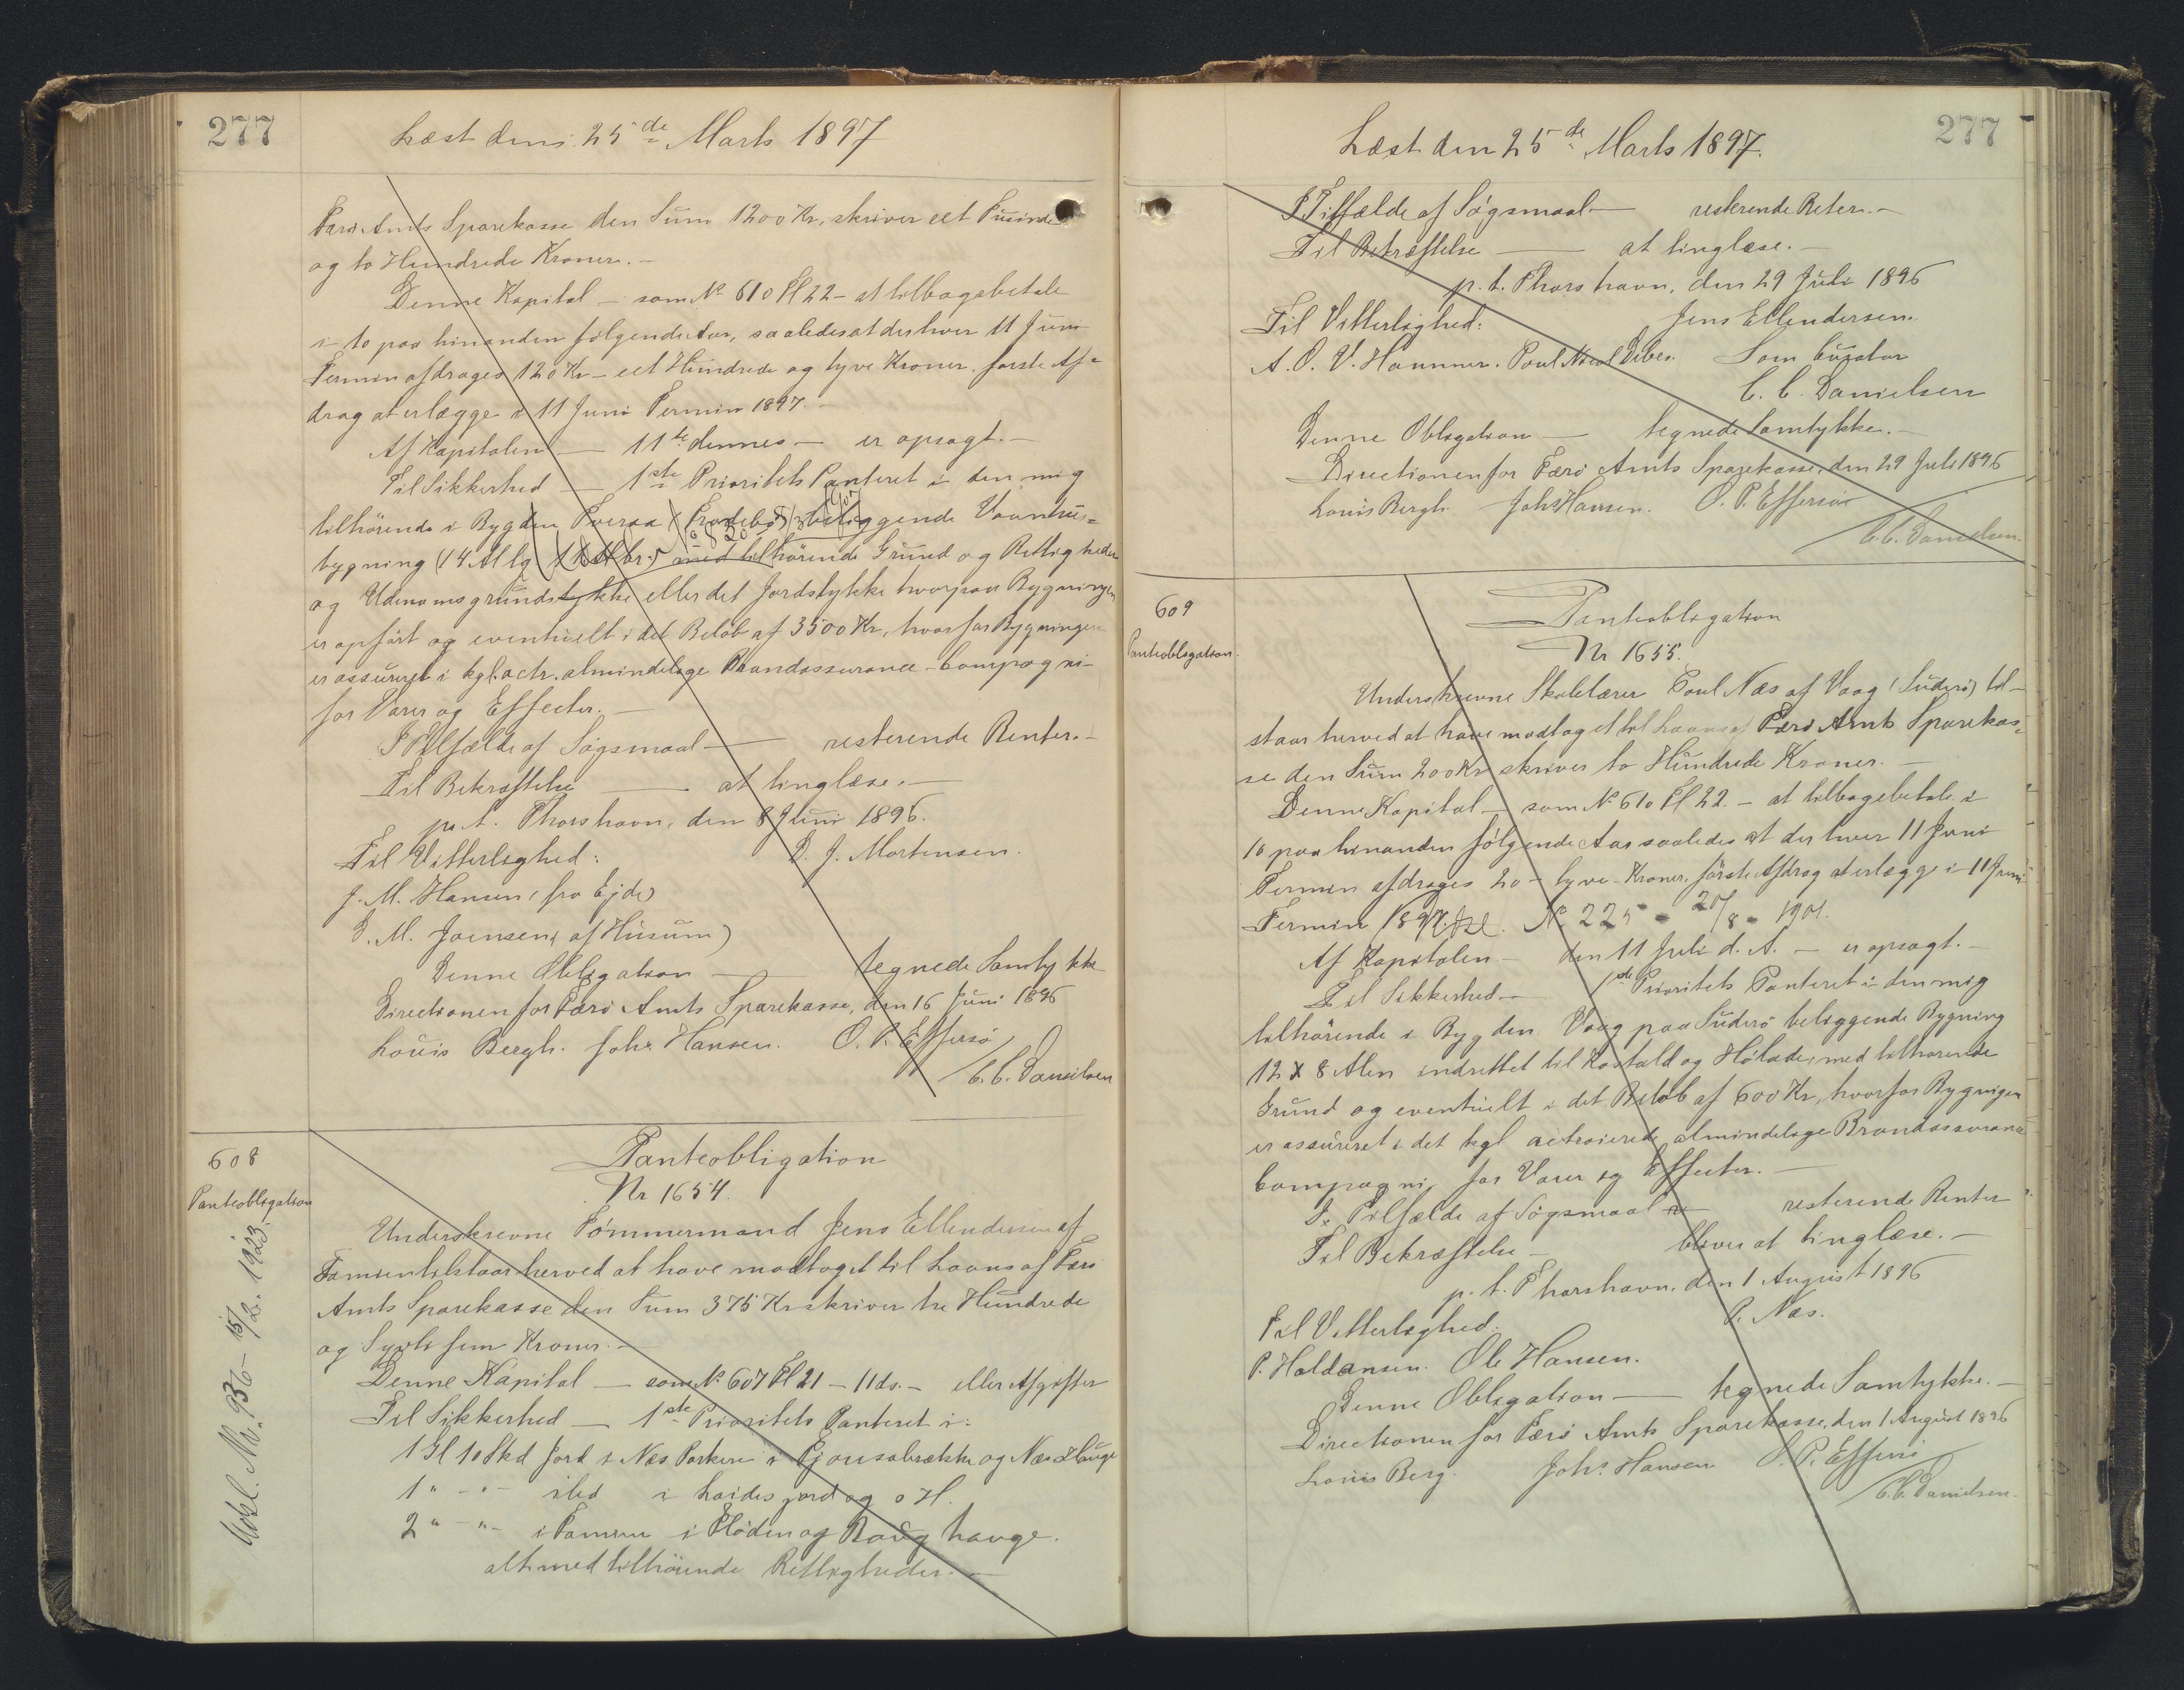 277
Læst den 25de Marts 1897
Færø Amts Sparekasse den Sum 1200 Kr, skriver eet Tusinde
og to Hundrede Kroner.-
Denne Kapital - som No 610 Pl 22 - at tilbagebetale
i 10 paa hinanden følgende Aar, saaledes at der hver 11 Juni
Termin afdrages 120 Kr - eet Hundrede og tyve Kroner. første Af-
drag at erlægge i 11 Juni Termin 1897.-
Af Kapitalen - 11te dennes - er opsagt.-
Til Sikkerhed - 1ste Prioritets Panteret i den mig
tilhørende i Bygden Tveraa (Trodebø) beliggende Vaanhu-
bygning (14 Al lg med tilhørende Grund og Rettigheder
og Udenomsgrundstykke eller det Jordstykke hvorpaa Bygningen
er opført og eventuelt i det Beløb af 3500 Kr, hvorfor Bygningen
er assureret i kgl. octr. almindelige Brandassurance-Compagni
for Varer og Effecter.-
I Tilfælde af Søgsmaal - resterende Renter.-
Til Bekræftelse - at tinglæse.-
p.t. Thorshavn, den 8 Juni 1896.
Til Vitterlighed: D. J. Mortensen.
J. M. Hansen (fra Ejde)
J. M. Joensen (af Húsum)
Denne Obligation - tegnede Samtykke
Directionen for Færø Amts Sparekasse, den 16 Juni 1896
Louis Bergh. Johs Hansen. O. P. Effersø
/C. C. Danielsen
608
Panteobligation
Udsl. Nr. 936 - 15/2. 1923.
Panteobligation
Nr 1654.
Underskrevne Tømmermand Jens Ellendersen af
Famien tilstaar herved at have modtaget til Laans af Færø
Amts Sparekasse den Sum 375 Kr skriver tre Hundrede
og Syvti fem Kroner.-
Denne Kapital - som No 607 Pl 21 - 11 ds.- eller Afgifter
Til Sikkerhed - 1ste Prioritets Panteret i:
1 Gl 10 Skd Jord i Nes Parkere i og Nes Hauge
1 " - " - ibd i
2 " - " - i Famien i hauge.
alt med tilhørende Rettigheder.-
277
Læst den 25de Marts 1897.
I Tilfælde af Søgsmaal - resterende Reter.-
Til Bekræftelse - at tinglæse.-
p.t. Thorshavn, den 29 Juli 1896
Til Vitterlighed: Jens Ellendersen.
A. O. V. Hammer. Poul Nicol Debes. Som Curator
C. C. Danielsen
Denne Obligation - tegnede Samtykke.-
Directionen for Færø Amts Sparekasse, den 29 Juli 1896
Louis Bergh. Johs Hansen. O. P. Effersøe
/C. C. Danielsen.
609
Panteobligation.
Panteobligation
Nr 1655.
Underskrevne Skolelærer Poul Næs af Vaag (Suderø) til-
staar herved at have modtaget til Laans af Færø Amts Sparekas-
se den Sum 200 Kr skriver to Hundrede Kroner.-
Denne Kapital - som No 610 Pl 22.- at tilbagebetale i
10 paa hinanden følgende Aar saaledes at der hver 11 Juni
Termin afdrages 20 - tyve - Kroner, første Afdrag at erlægge i 11 Juni
Termin 1897. Udsl. No 225 - 20/8 - 1901.
Af Kapitalen - den 11 Juli d. A. - er opsagt.-
Til Sikkerhed - 1ste Prioritets Panteret i den mig
tilhørende i Bygden Vaag paa Suderø beliggende Bygning
12 X 8 Alen indrettet til Kostald og Hølade, med tilhørende
Grund og eventuelt i det Beløb af 600 Kr, hvorfor Bygnigen
er assureret i det kgl octroierede almindelige Brandassurance
Compagni for Varer og Effecter.-
I Tilfælde af Søgsmaal - resterende Renter
Til Bekræftelse - bliver at tinglæse.-
p.t. Thorshavn, den 1 August 1896
Til Vitterlighed: P. Næs.
P. Haldansen. Ole Hansen.
Denne Obligation - tegnede Samtykke.-
Directionen for Færø Amts Sparekasse, den 1 August 1896
Louis Berg. Johs Hansen O. P. Effersø
/C. C. Danielsen.